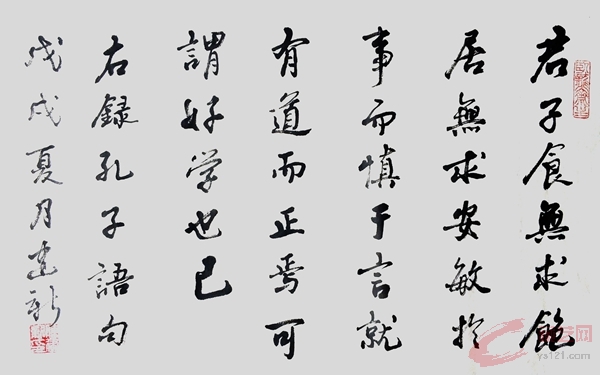 君子食無求飽
居無求安敏於
事而慎于言就
有道而正焉可
謂好学也已
右録孔子語句
戊戌夏月建新
ys121.com